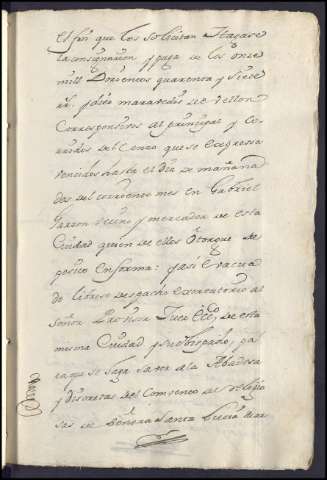 el fin que los solicitan Hagase
la consignacion y paga de los once
mill Docientos quarenta y siete
rr.s y diez maravedis de vellon
Correspondientes al principal y Co-
rridos del Censo que se expressa
vencidos hasta el dia de mañana
dos del corriente mes en Gabriel
Garzon vecino y mercader de esta
Ciudad quien de ellos otorgue De-
posito en forma: y asi evacua
do librese Despacho exortatorio al
Señor Provisor Juez Ecc.o de esta
mesma Ciudad y su obispado, pa
ra que se haga saver a la Abadesa
y Discretas del Convento de religio
sas de Señora Santa Lucia